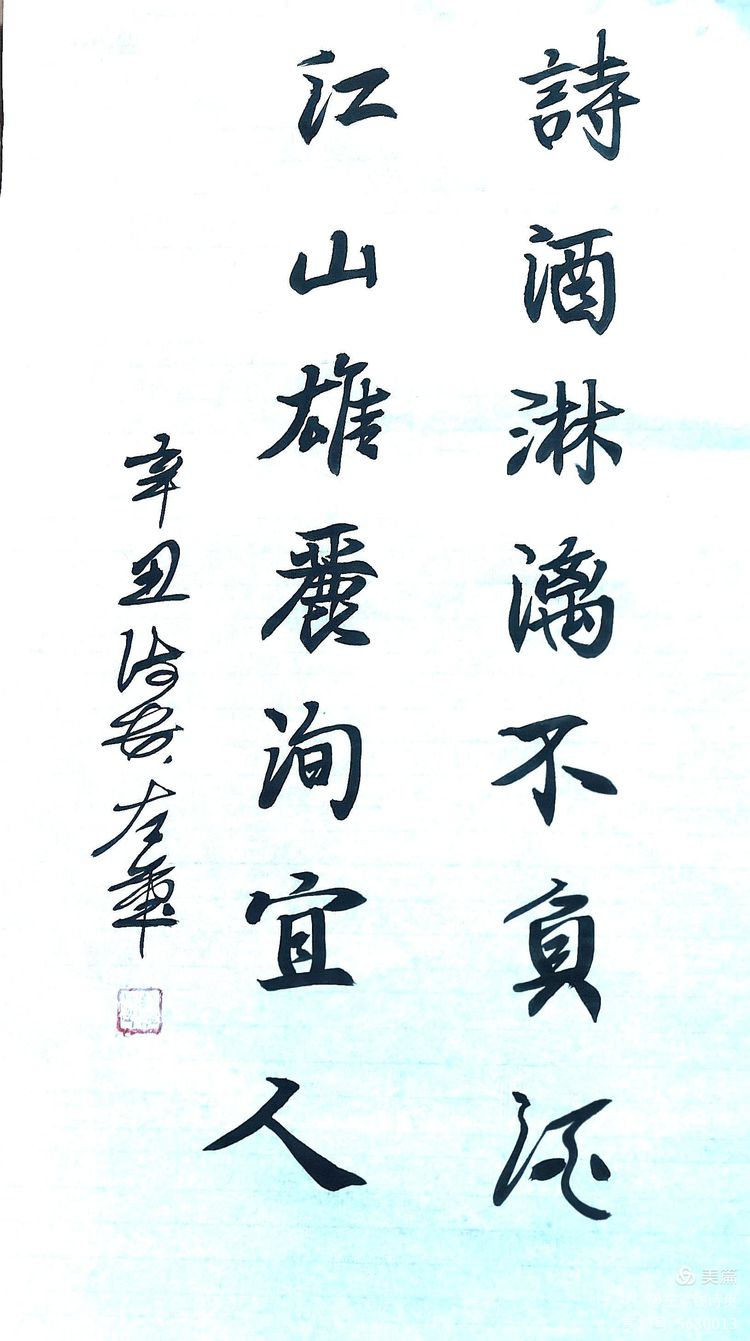 詩酒淋漓不負
江山雄麗洵宜人
辛丑 左筆
美篇